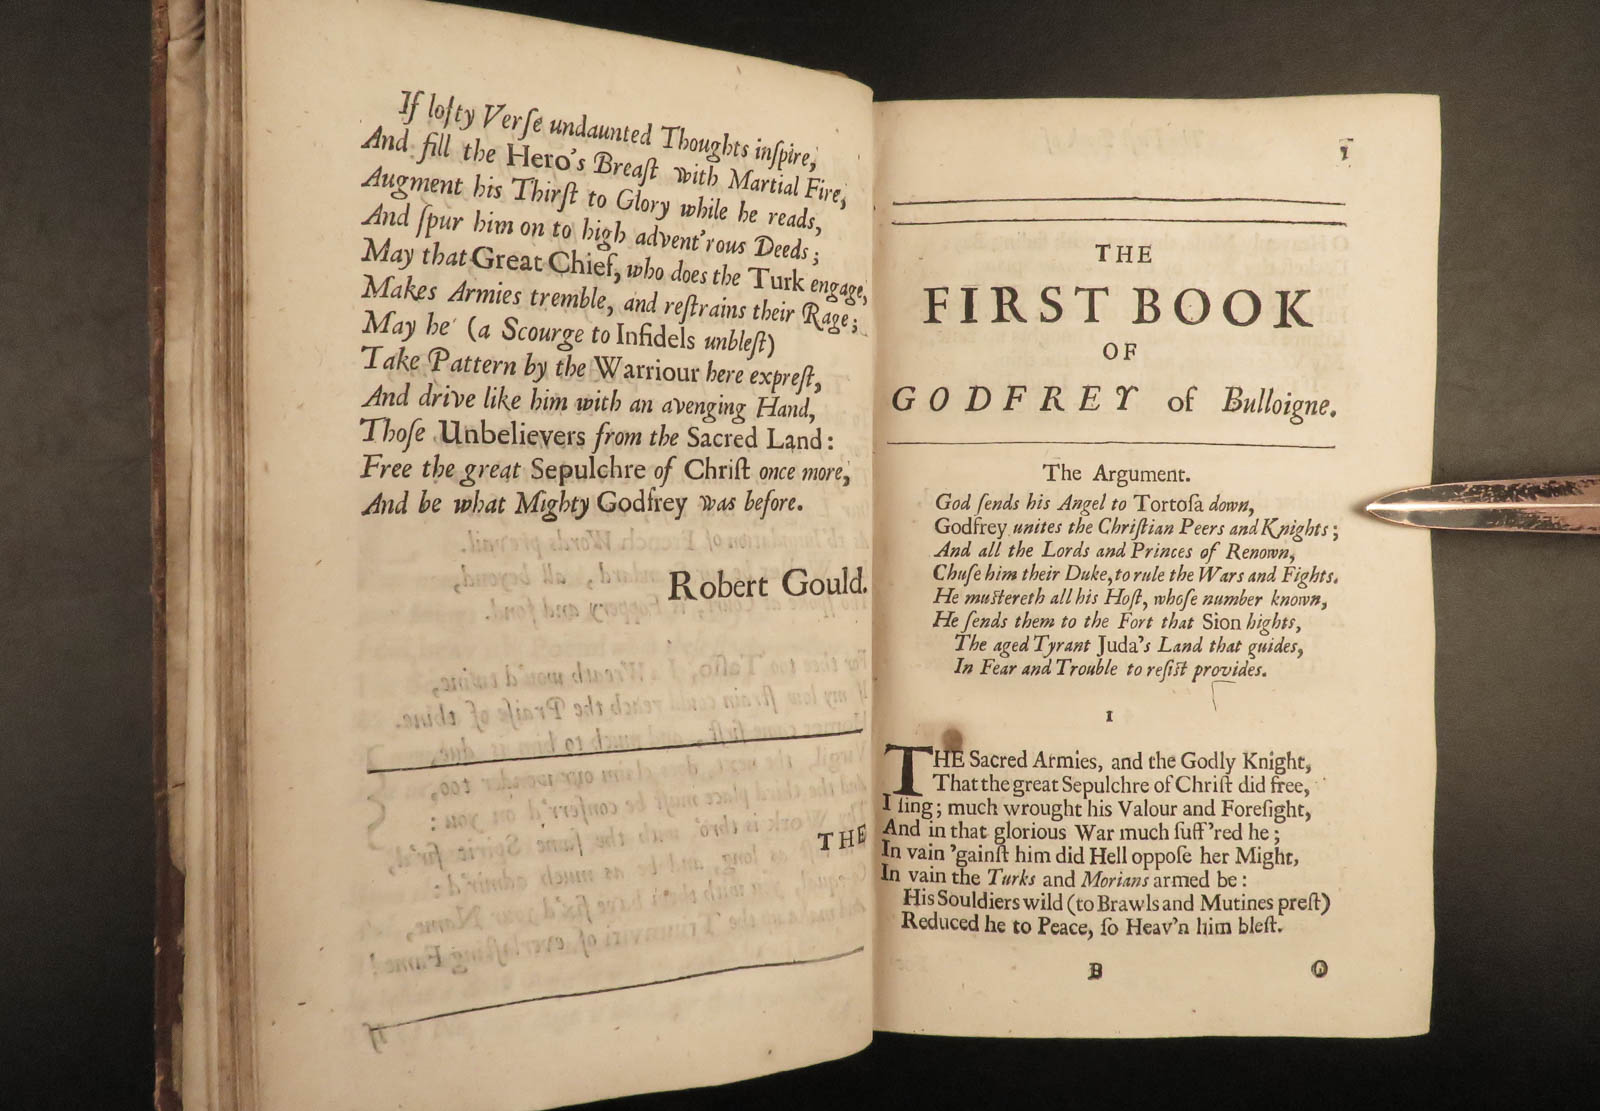 If lofty Verſe undaunted Thoughts inſpire,
And fill the Hero's Breaſt with Martial Fire,
Augment his Thirſt to Glory while he reads,
And ſpur him on to high advent'rous Deeds;
May that Great Chief, who does the Turk engage,
Makes Armies tremble, and reſtrains their Rage;
May he (a Scourge to Infidels unbleſt)
Take Pattern by the Warriour here expreſt,
And drive like him with an avenging Hand,
Thoſe Unbelievers from the Sacred Land:
Free the great Sepulchre of Chriſt once more,
And be what Mighty Godfrey was before.
Robert Gould.
THE
1
THE
FIRST BOOK
OF
GODFREY of Bulloigne.
The Argument.
God ſends his Angel to Tortoſa down,
Godfrey unites the Chriſtian Peers and Knights;
And all the Lords and Princes of Renown,
Chuſe him their Duke, to rule the Wars and Fights.
He muſtereth all his Hoſt, whoſe number known,
He ſends them to the Fort that Sion hights,
The aged Tyrant Juda's Land that guides,
In Fear and Trouble to reſiſt provides.
I
THE Sacred Armies, and the Godly Knight,
That the great Sepulchre of Chriſt did free,
I ſing; much wrought his Valour and Foreſight,
And in that glorious War much ſuff'red he;
In vain 'gainſt him did Hell oppoſe her Might,
In vain the Turks and Morians armed be:
His Souldiers wild (to Brawls and Mutines preſt)
Reduced he to Peace, ſo Heav'n him bleſt.
B O